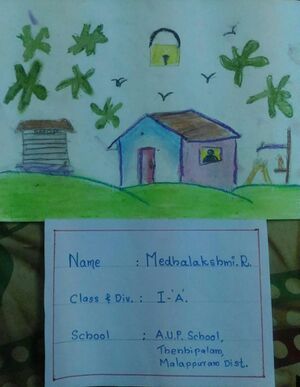 SHOP
Name : Medhalakshmi.R.
Class & Div. : I-'A'.
School : A.U.P. School,
Thenhipalam,
Malappuram Dist.